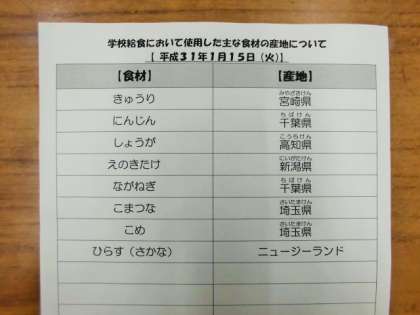 学校給食において使用した主な食材の産地について
【 平成31年1月15日（火）】
【食材】 【産地】
きゅうり 宮崎県
にんじん 千葉県
しょうが 高知県
えのきたけ 新潟県
ながねぎ 千葉県
こまつな 埼玉県
こめ 埼玉県
ひらす（さかな） ニュージーランド